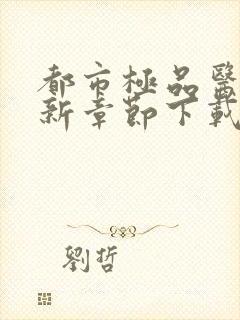 都市極品醫
新章節下載
劉哲